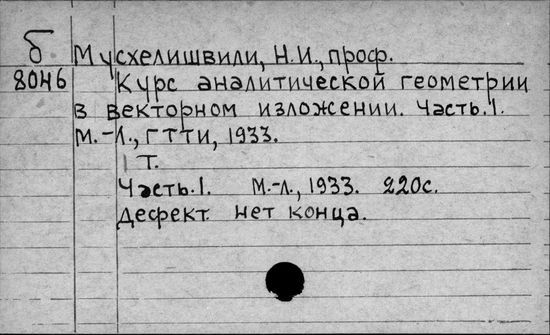 б Мусхелишвили, Н.И., проф.
8046 Курс аналитической геометрии
в векторном изложении. Часть.1.
М.-Л., ГТТИ, 1933.
1 Т.
Часть.1. М.-Л., 1933. 220с.
Дефект нет конца.